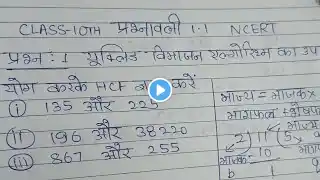 CLASS-10TH प्रश्नावली 1.1 NCERT
प्रश्न: 1 यूक्लिड विभाजन एल्गोरिथ्म का उप
योग करके HCF ज्ञात करें
(i) 135 और 225
(ii) 196 और 38220
(iii) 867 और 255
भाज्य = भाजक ×
भागफल + शेषफल
भाज्य
2) 11 (5
भाजक 10
b 1